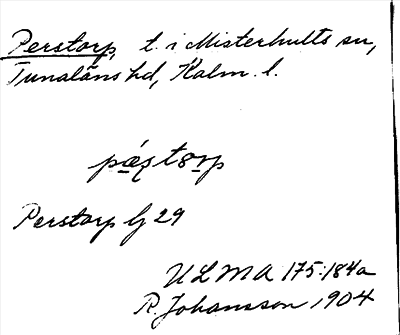 Perstorp, t. i Misterhults sn,
Tunaläns hd, Kalm. l.
pǽʂtərp
Perstorp Lj 29
ULMA 175:184a
R. Johansson 1904